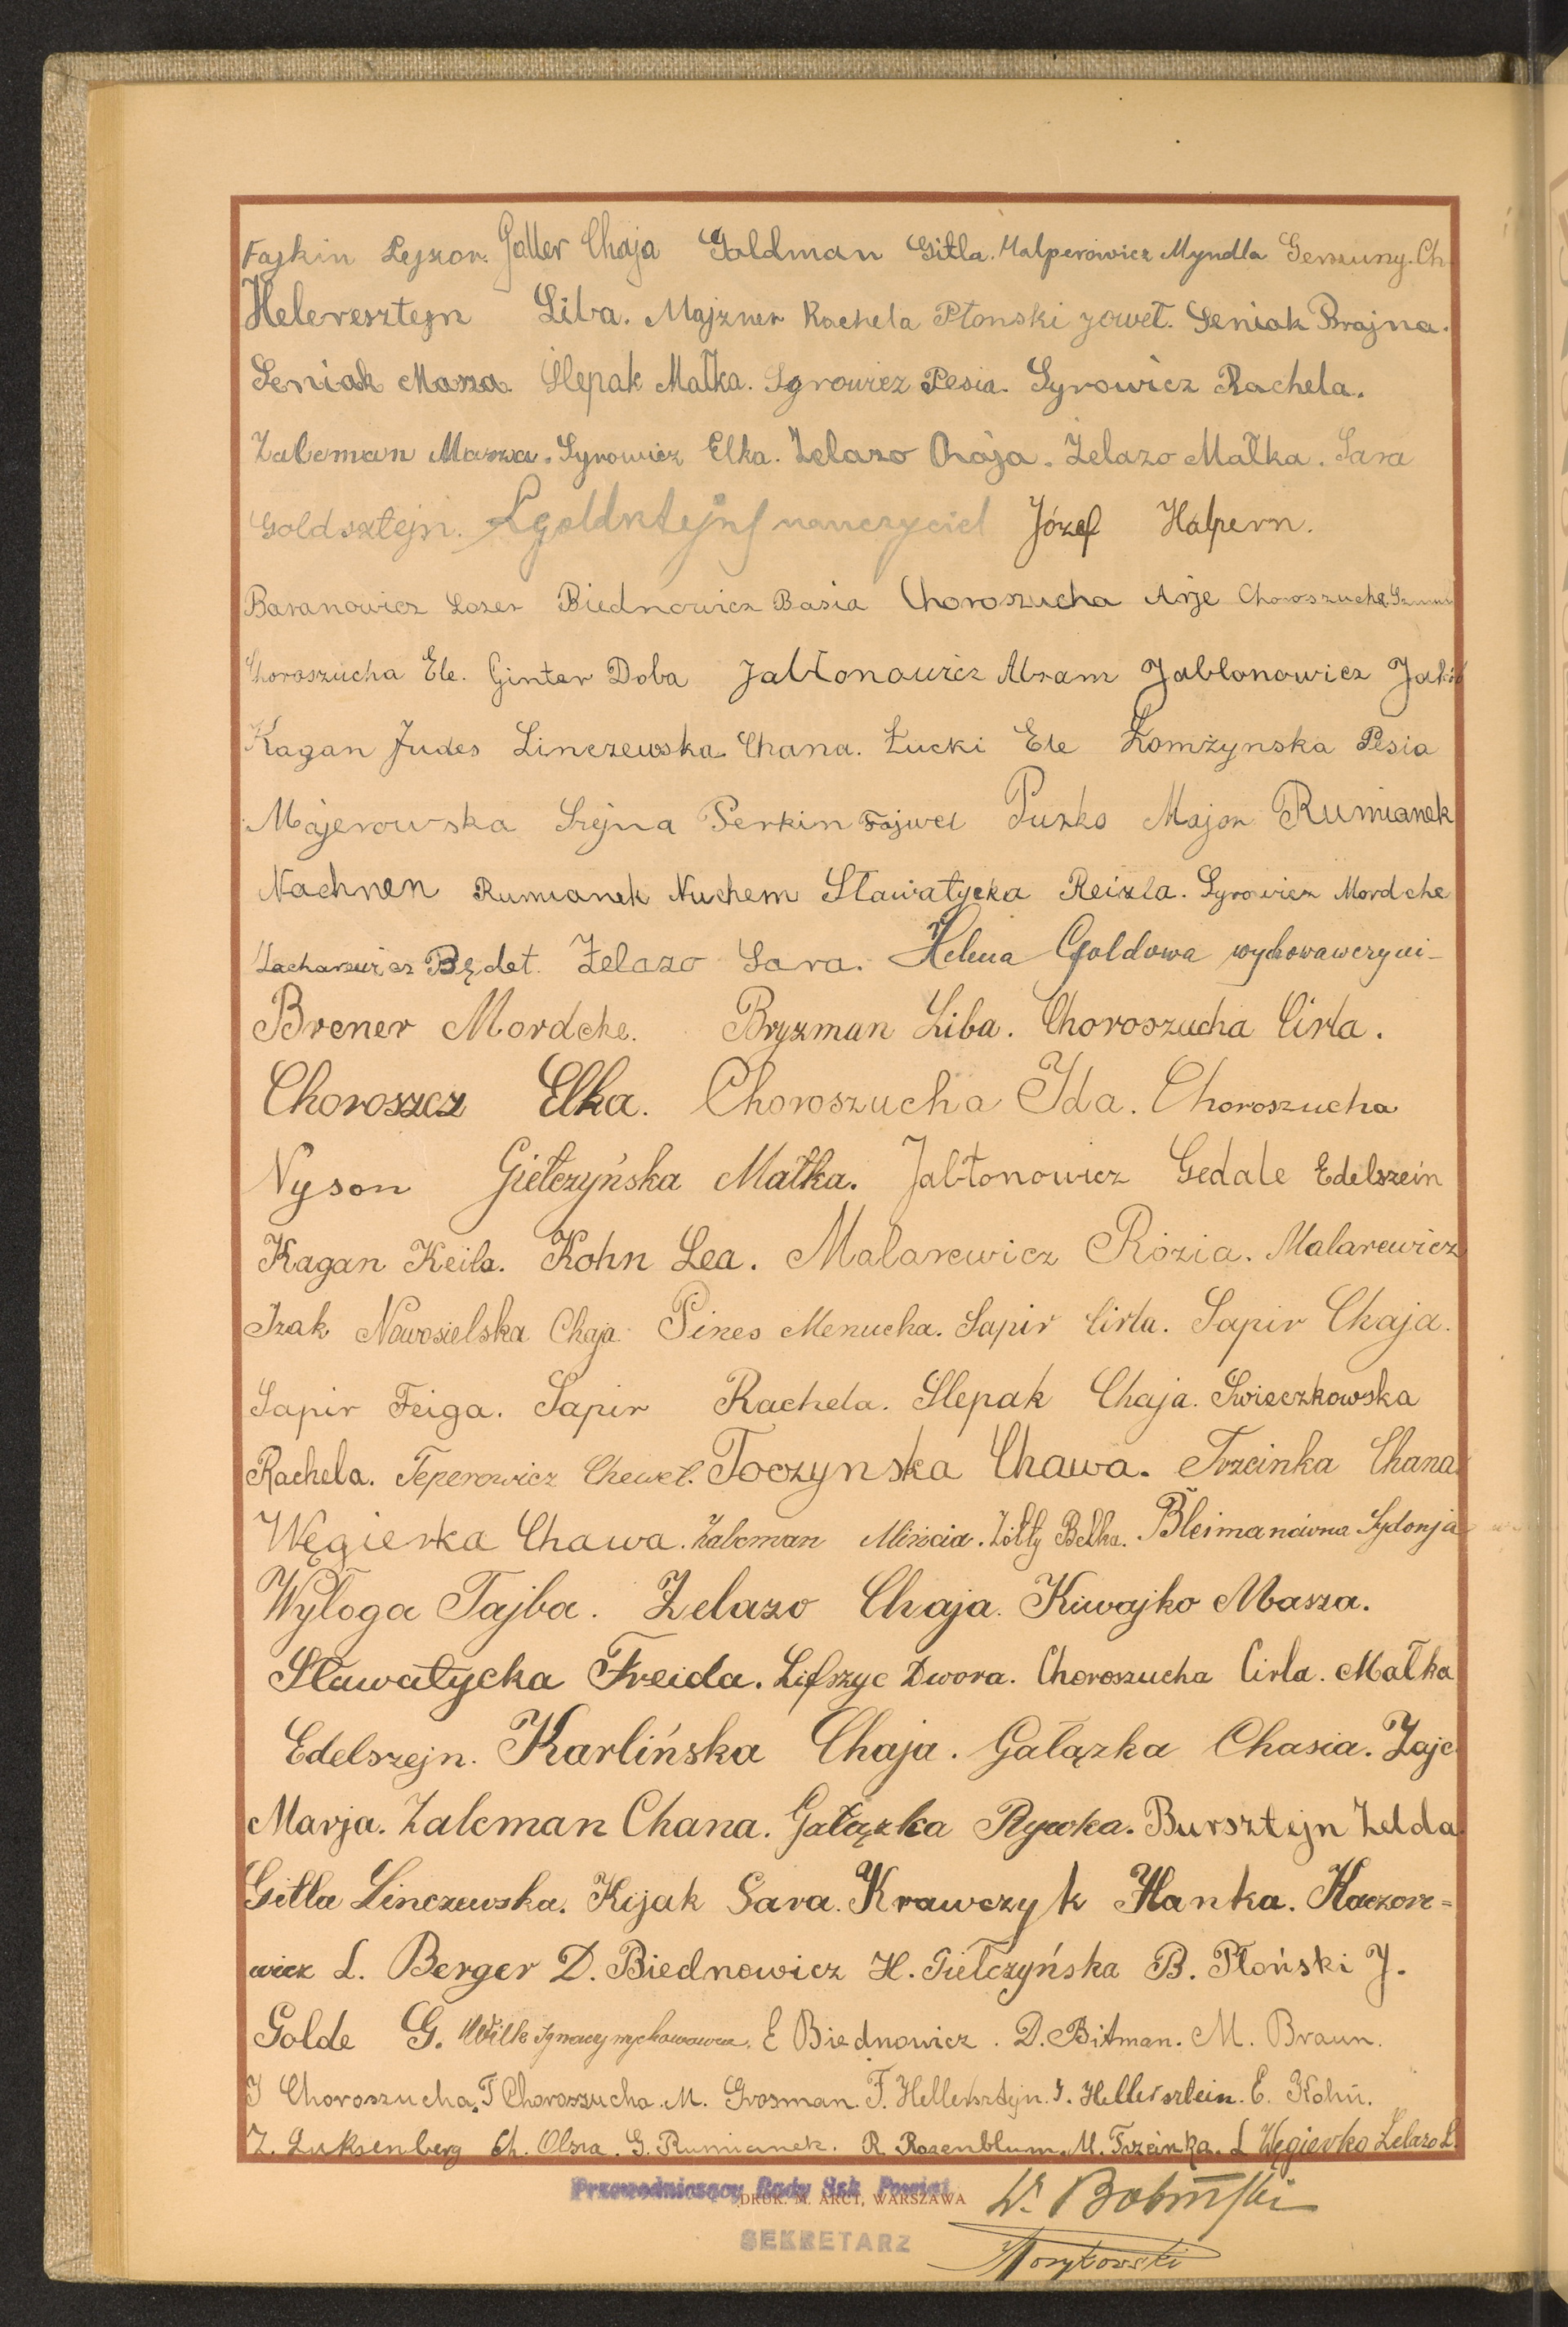 Fajkin Lejzor. Galler Chaja Goldman Gitla. Halperowicz Myndla Gerszuny. Ch.
Helersztejn Liba. Majzner Rachela Płonski Jowel. Seniak Brajna.
Seniak Masza. Ślepak Małka. Syrowicz Pesia. Syrowicz Rachela.
Zalcman Masza. Syrowicz Elka. Żelazo Chaja. Żelazo Małka. Sara
Goldsztejn. nauczyciel Józef Halpern.
Baranowicz Lozer Biednowicz Basia Choroszucha Arje Choroszucha Szmul
Choroszucha Ele. Ginter Doba Jabłonowicz Abram Jabłonowicz Jakób
Kagan Judes Linczewska Chana. Łucki Ele Łomżynska Pesia
Majerowska Szejna Perkin Fajwel Puzko Major Rumianek
Nachnen Rumianek Nuchem Sławatycka Reizla. Syrowicz Mordche
Zacharewicz Będet. Żelazo Sara. Helena Goldowa wychowawczyni-
Brener Mordche. Bryzman Liba. Choroszucha Cirla.
Choroszcz Elka. Choroszucha Ida. Choroszucha
Nyson Giełczyńska Małka. Jabłonowicz Gedale Edelszein
Kagan Keila. Kohn Lea. Malarewicz Rózia. Malarewicz
Izak Nowosielska Chaja Pines Menucha. Sapir Cirla. Sapir Chaja.
Sapir Feiga. Sapir Rachela. Slepak Chaja. Swieczkowska
Rachela. Teperowicz Chewel. Toczynska Chawa. Trzcinka Chana.
Węgierka Chawa. Zalcman Mincia. Żółty Belka. Bleimanówna Sydonja
Wyłoga Tajba. Żelazo Chaja. Kiwajko Masza.
Sławatycka Freida. Lifszyc Dwora. Choroszucha Cirla. Małka
Edelszejn. Karlińska Chaja. Gałązka Chasia. Zajc
Marja. Zalcman Chana. Gałązka Rywka. Bursztejn Zelda.
Gitla Linczewska. Kijak Sara. Krawczyk Hanka. Kaczore=
wicz L. Berger D. Biednowicz H. Giełczyńska B. Płoński J.
Golde G. Wilk Ignacy wychowawca. E Biednowicz. D. Bitman. M. Braun.
I Choroszucha. T Choroszucha. M. Grosman. F. Hellersztejn. I. Hellersztein. E. Kohn.
Z. Luksenberg Ch. Olsza. G. Rumianek. R. Rozenblum. M. Trzcinka. L Węgierko Żelazo L.
Przewodniczący Rady Szk Powiat.
DRUK. M. ARCT, WARSZAWA
SEKRETARZ